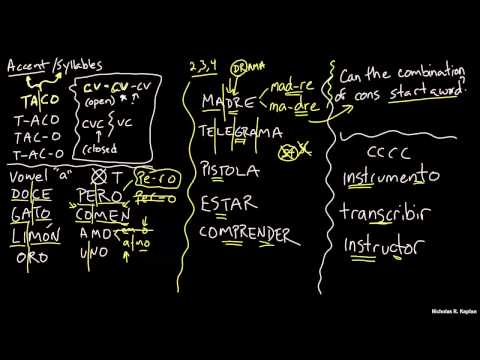 Accent/Syllables
TACO
T-ACO
TAC-O
T-AC-O
CV-CV-CV
(open)
CVC VC
(closed
Vowel "a" T
DOCE PERO Pe-ro
GATO COMEN
LIMÓN AMO
ORO UNO
a mo
2,3,4 DRAMA
MADRE mad-re
ma-dre
TELEGRAMA
PISTOLA
ESTAR
COMPRENDER
Can the combination
of cons start a word?
CCCC
instrumento
transcribir
instructor
Nicholas R. Kaplan